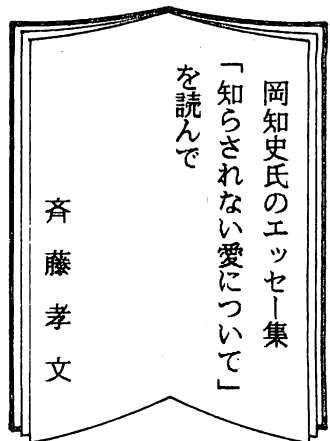 岡知史氏のエッセー集
「知らされない愛について」
を読んで
斉藤孝文